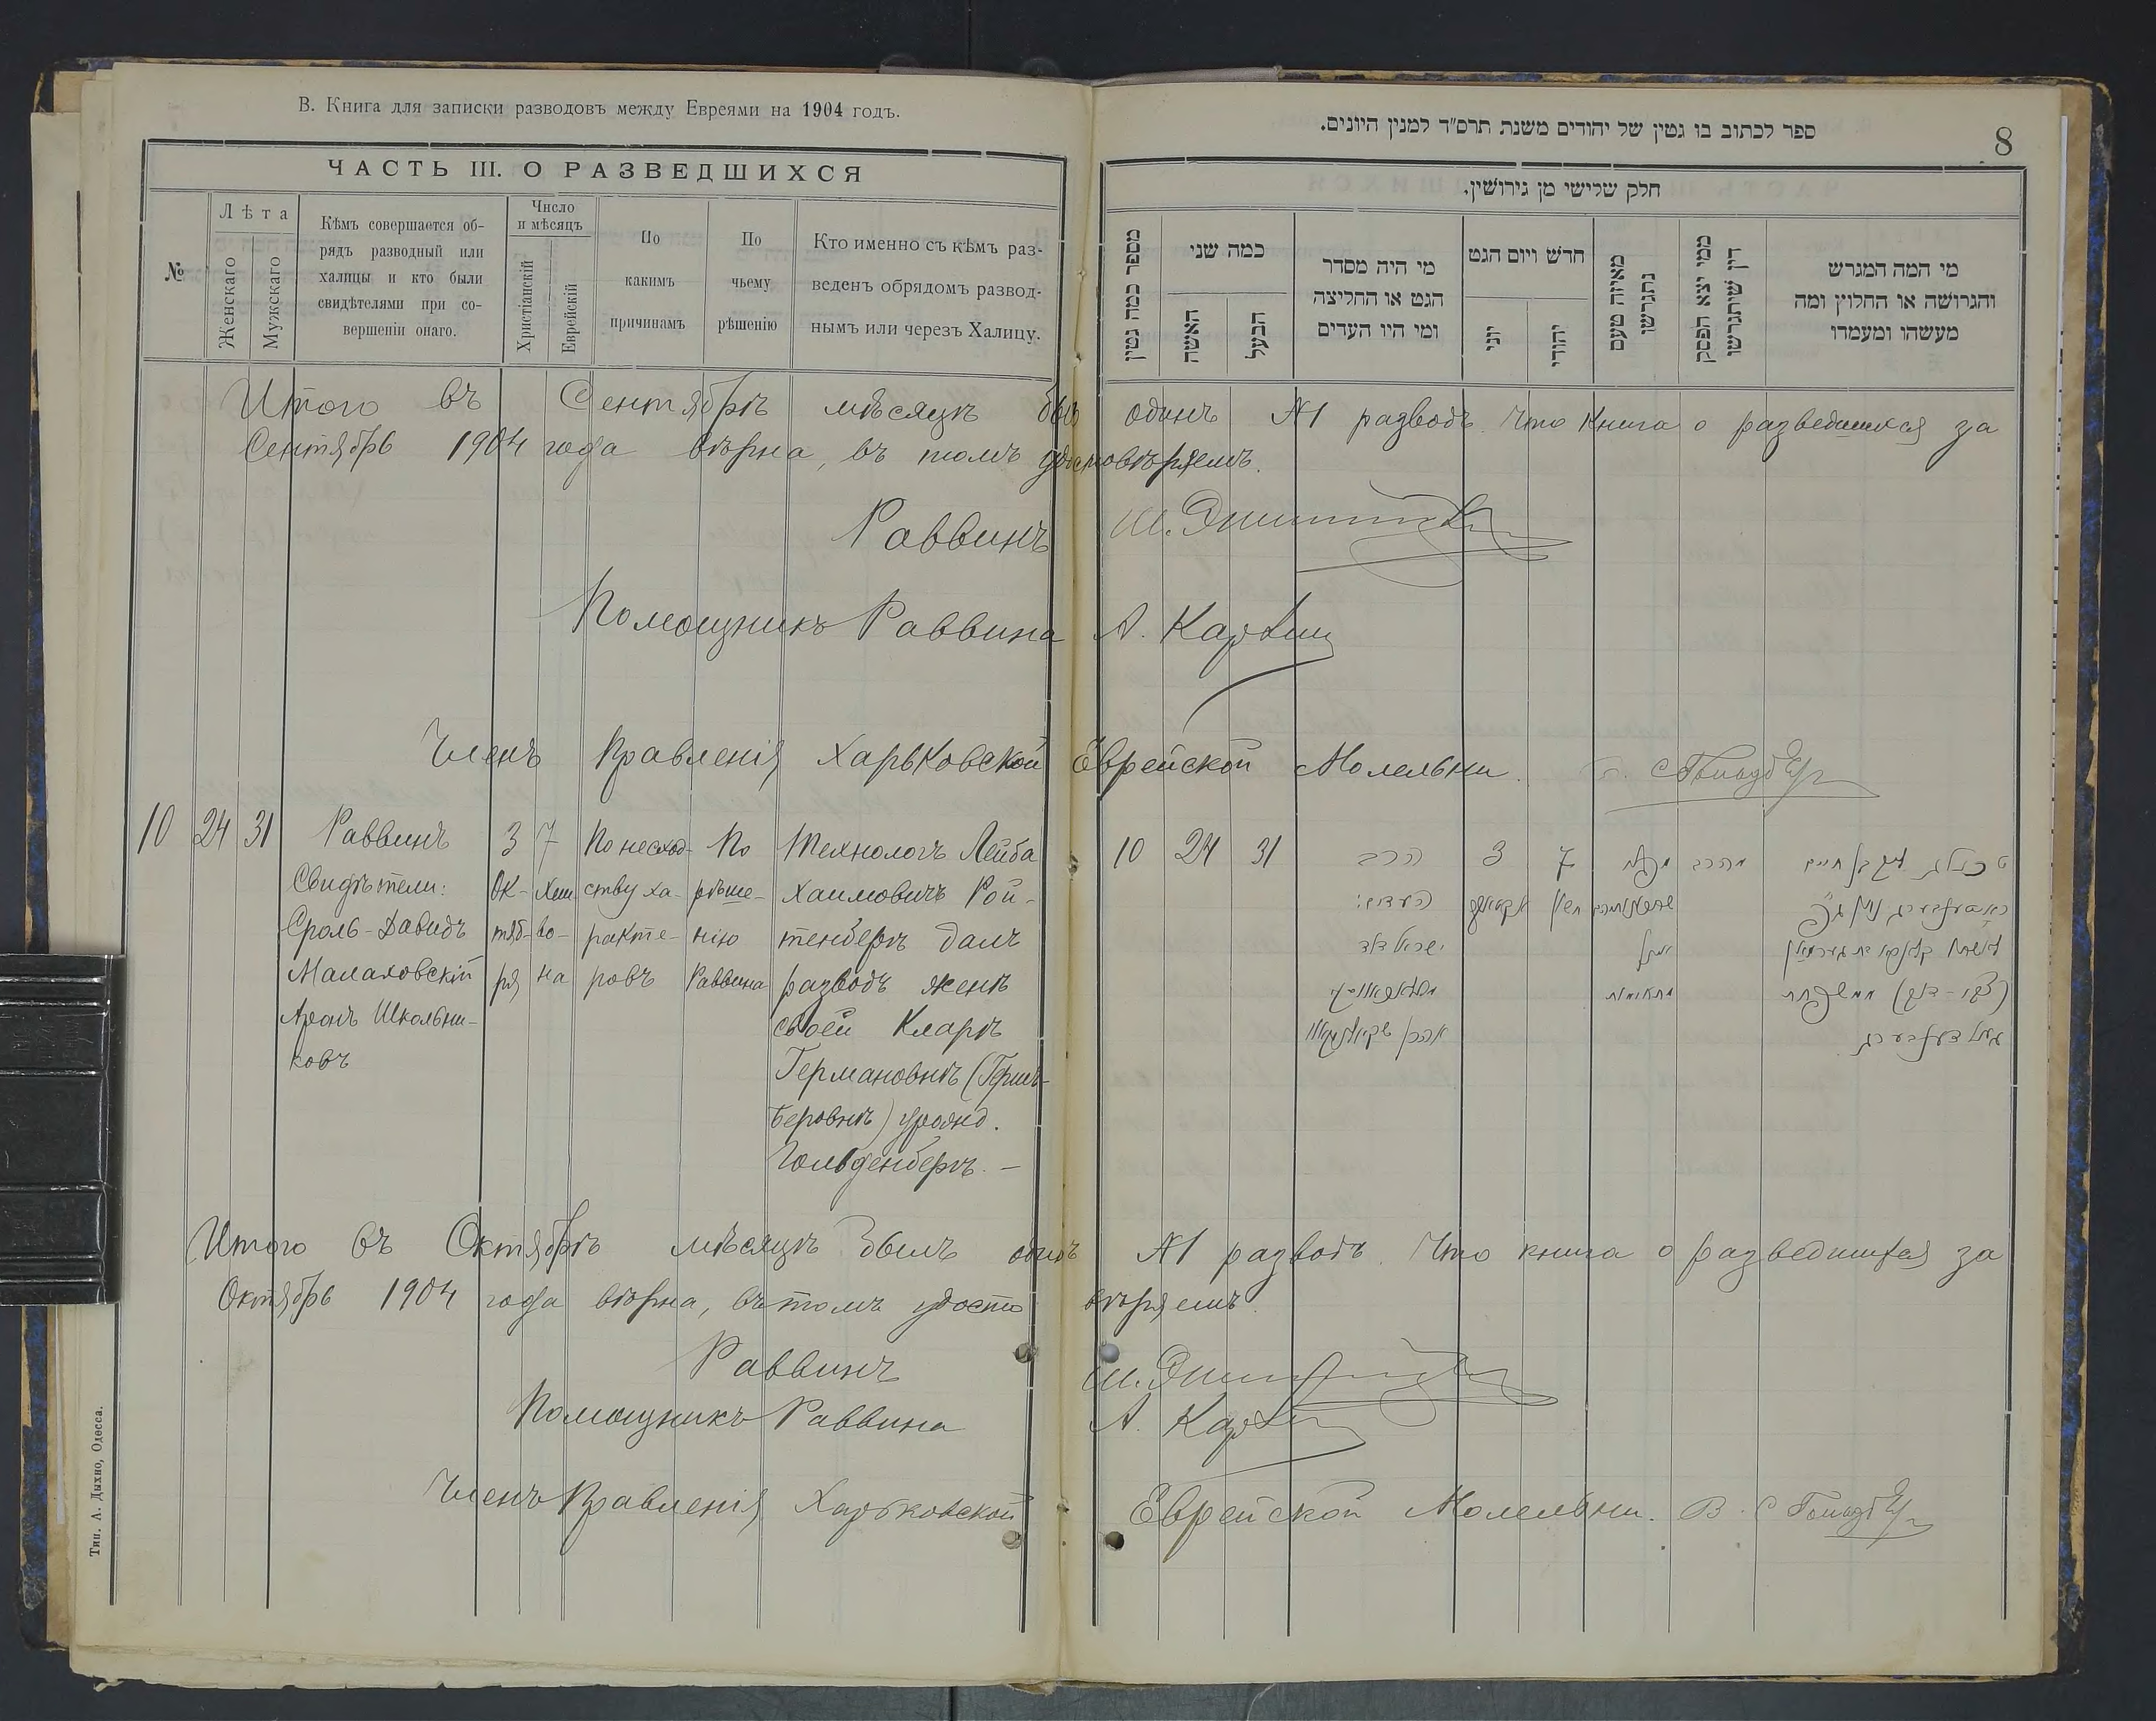 В. Книга для записки разводовъ между Евреями на 1904 годъ.
ЧАСТЬ III. О РАЗВЕДШИХСЯ
№
Лѣта
Женскаго
Мужскаго
Кѣмъ совершается об-
рядъ разводный или
халицы и кто были
свидѣтелями при со-
вершеніи онаго.
Число
и мѣсяцъ
Христіанскій
Еврейскій
По
какимъ
причинамъ
По
чьему
рѣшенію
Кто именно съ кѣмъ раз-
веденъ обрядомъ развод-
нымъ или черезъ Халицу.
ספר לכתוב בו גטין של יהודים משנת תרס״ד למנין היונים.
8
חלק שלישי מן גירושין.
מספר כמה גטין
כמה שני
האשה
הבעל
מי היה מסדר
הגט או החליצה
ומי היו העדים
חדש ויום הגט
יוני
יהודי
מאיזה טעם
נתגרשו
ממי יצא הפסק
דין שיתגרשו
מי המה המגרש
והגרושה או החלוץ ומה
מעשהו ומעמדו
Итого въ Сентябрѣ мѣсяцѣ былъ одинъ №1 разводъ. Что книга о разведшихся за
Сентябрь 1904 года вѣрна, въ томъ удостовѣряемъ.
Раввинъ
Помощникъ Раввина А.
Членъ Правленія Харьковской Еврейской Молельни.
10 24 31
Раввинъ
Свидѣтели:
Сроль-Давидъ
Малаховскій
Аронъ Школьни-
ковъ
3
Ок-
тяб-
ря
7
Хеш-
во-
на
По несход-
ству ха-
ракте-
ровъ
По
рѣше-
нію
Раввина
Технологъ Лейба
Хаимовичъ Рой-
тенбергъ далъ
разводъ женѣ
своей Кларѣ
Германовнѣ (Герш-
Беровнѣ) урожд.
Гольденбергъ. –
10 24 31
הרב
העדים:
ישראל דוד
3
7
חשון
מהרב
Итого въ Октябрѣ мѣсяцѣ былъ одинъ №1 разводъ. Что книга о разведшихся за
Октябрь 1904 года вѣрна, въ томъ удостовѣряемъ.
Раввинъ
Помощникъ Раввина А.
Членъ Правленія Харьковской Еврейской Молельни.
Тип. А. Дыхно, Одесса.